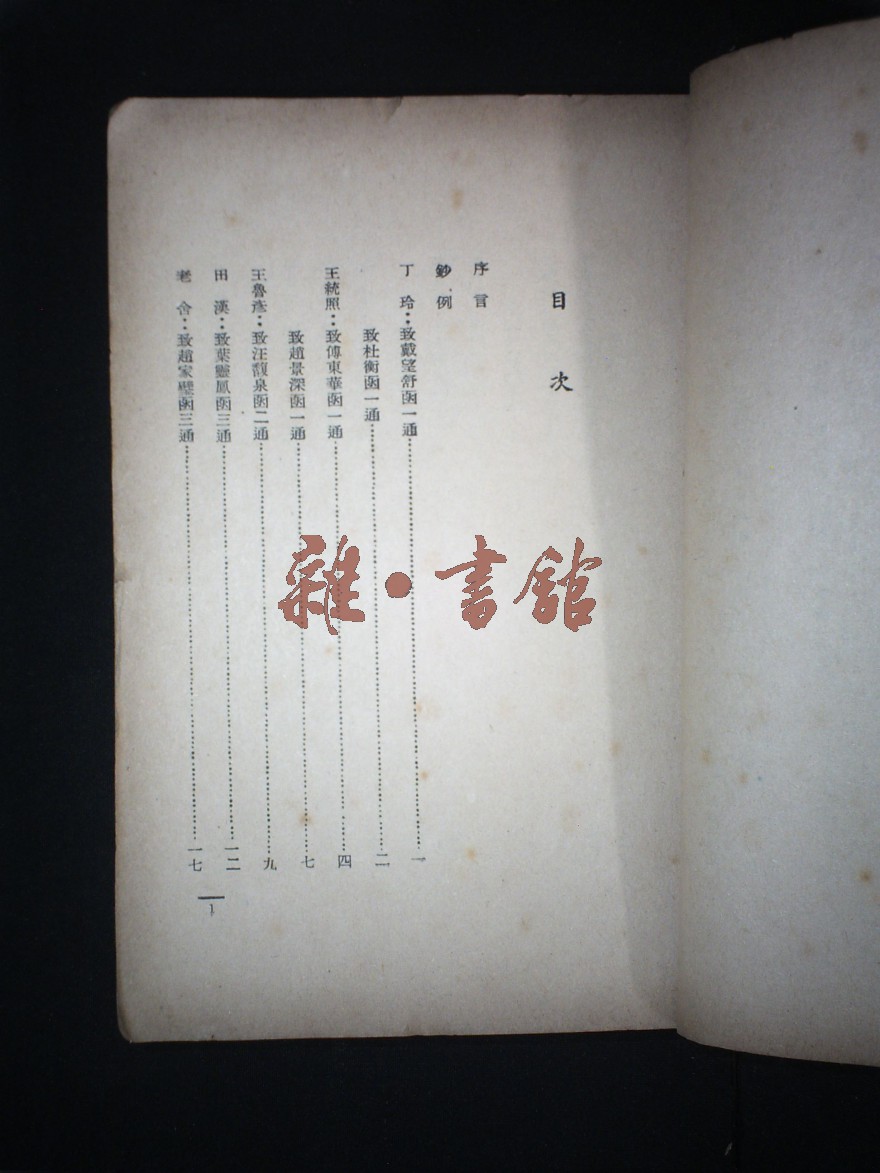 目次
序言
鈔例
丁玲：致戴望舒函一通……一
致杜衡函一通……二
王統照：致傅東華函一通……四
致趙景深函一通……七
王魯彥：致汪馥泉函二通……九
田漢：致葉靈鳳函三通……一二
老舍：致趙家璧函三通……一七
1
雜•書館